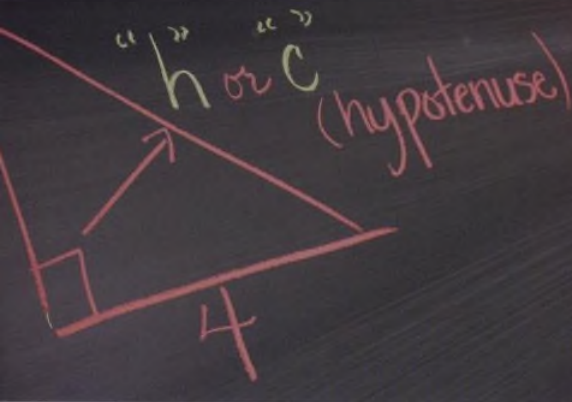 "h" or "c"
(hypotenuse)
4